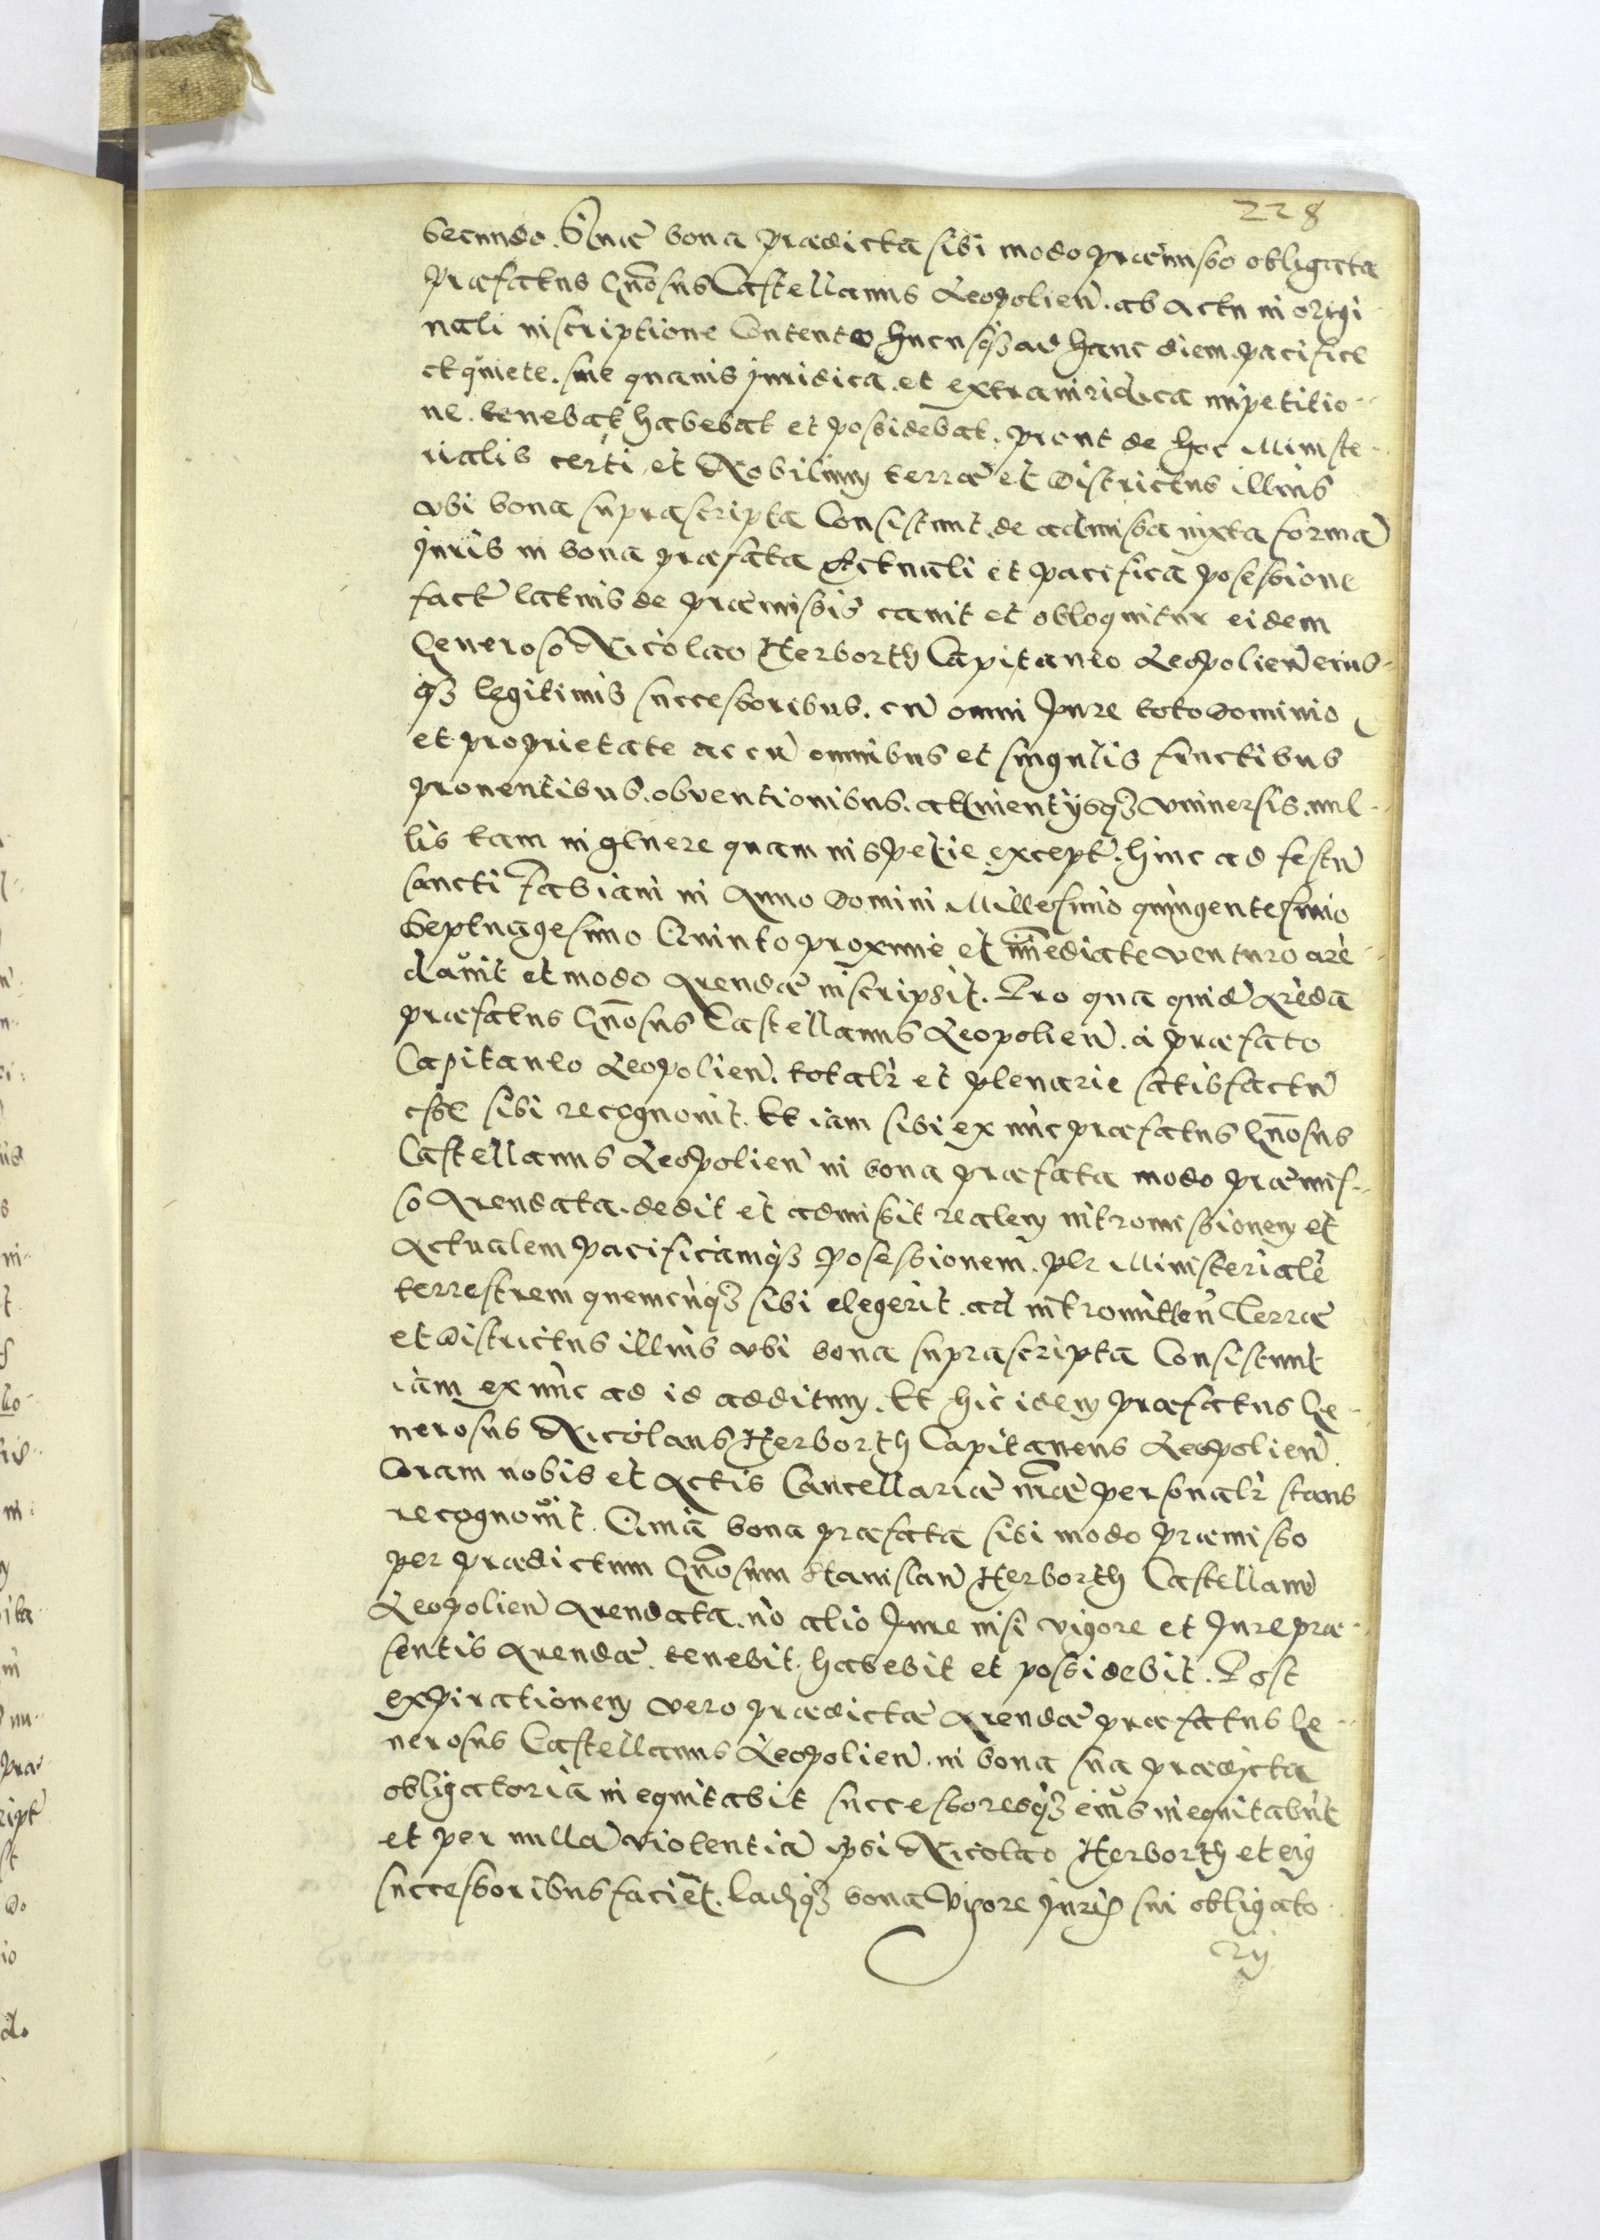 228
secundo. Quae bona praedicta sibi modo praemisso obligata
praefatus Gn̄osus Castellanus Leopolien̄. ab actu in origi-
nali inscriptione Contento hucusq₃ ad hanc diem pacifice
et quiete. sine quavis juridica et extrajuridica impetitio-
ne. tenebat habebat et possidebat. prout de hoc Ministe-
rialis certi et Nobilium terrae et Districtus illius
ubi bona suprascripta Consistunt de admissa iuxta formā
Juris in bona praefata Actuali et pacifica possessione
fact̄ latius de praemissis cavit et obloquitur eidem
Generoso Nicolao Herborth Capitaneo Leopolien̄ eius-
q₃ legitimis successoribus. cū omni Jure toto dominio
et proprietate ac cū omnibus et singulis fructibus
proventibus. obventionibus. attinentijsq₃ universis. nul-
lis tam in genere quam in specie except̄. hinc ad festū
sancti Fabiani in Anno Domini Millesimo quingentesimo
Septuagesimo Quinto proxime et im̄ediate venturo arē-
davit et modo Arendae inscripsit. Pro qua quidē Arēda
praefatus Gn̄osus Castellanus Leopolien̄. a praefato
Capitaneo Leopolien̄. totalr̄ et plenarie satisfactū
esse sibi recognovit. Et iam sibi ex nūc praefatus Gn̄osus
Castellanus Leopolien̄ in bona praefata modo praemis-
so Arendata. dedit et admisit realem intromissionem et
Actualem pacificamq₃ possessionem. per Ministerialē
terrestrem quemcūq₃ sibi elegerit. ad intromitten̄ Terrae
et Districtus illius ubi bona suprascripta Consistunt
iam ex nūc ad id additum. Et hic idem praefatus Ge-
nerosus Nicolaus Herborth Capitaneus Leopolien̄.
Coram nobis et Actis Cancellariae nr̄ae personalr̄ stans
recognovit. Quia bona praefata sibi modo praemisso
per praedictum Gn̄osum Stanislaū Herborth Castellanū
Leopolien̄ Arendata. nō alio Jure nisi vigore et Jure prae-
sentis Arendae. tenebit. habebit et possidebit. Post
expirationem vero praedictae Arendae praefatus Ge-
nerosus Castellanus Leopolien̄. in bona sua praedicta
obligatoria inequitabit successoresq₃ eius inequitabūt
et per nullā violentiā ipsi Nicolao Herborth et eius
successoribus faciēt. bona Vigore Juris sui obligato-
rij